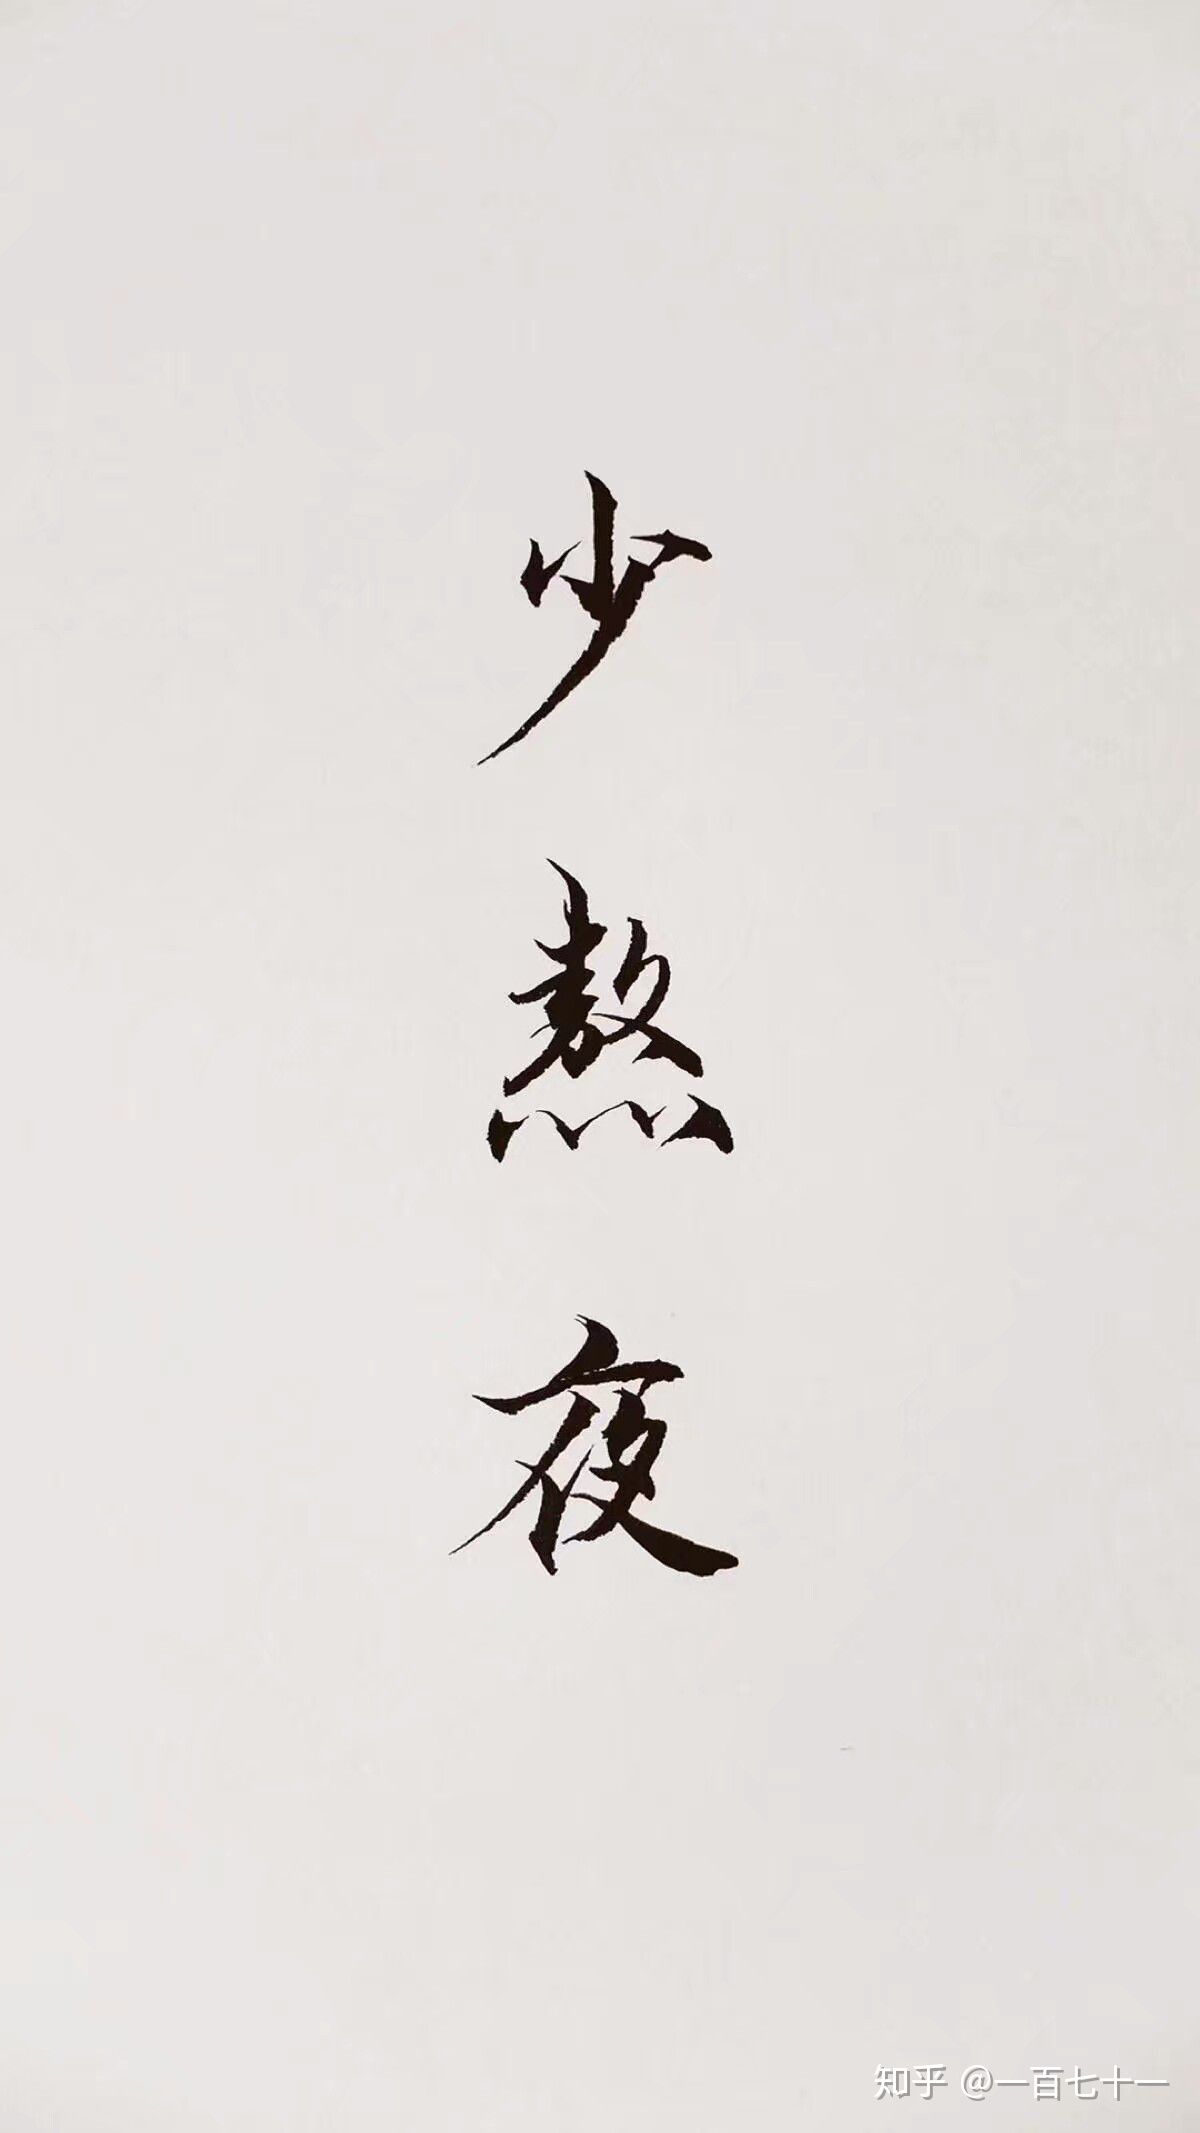 少熬夜
知乎 @一百七十一